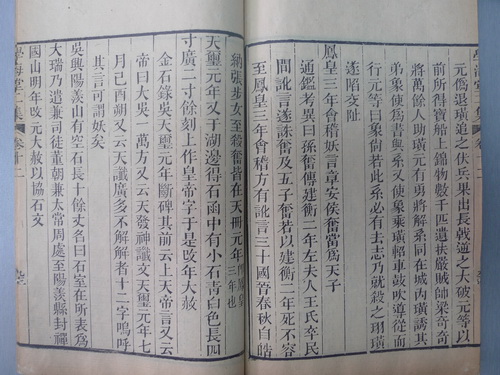 元偽退璜追之伏兵果出長戟逆之大破元等以
前所得寶船上錦物數千匹遺扶嚴賊帥梁奇奇
將萬餘人助璜元有勇將解系同在城內璜誘其
弟象使為書與系又使象乘璜軺車鼓吹導從而
行元等曰象尚若此系必有去志乃就殺之珝璜
遂陷交趾
鳳皇三年會稽妖言章安侯奮當為天子
通鑑考異曰孫奮傳建衡二年左夫人王氏卒民
間訛言遂誅奮及五子奮若以建衡二年死不容
至鳳皇三年會稽方有訛言三十國晉春秋自皓
納張步女至殺奮皆在天冊元年
三年也
天璽元年又于湖邊得石函中有小石青白色長四
寸廣二寸餘刻上作皇帝字于是改年大赦
金石錄吳天璽元年斷碑其前云上天帝言又云
帝曰大吳一萬方又云天發神讖文天璽元年七
月己酉朔又云天讖廣多不解解者十二字嗚呼
其言可謂妖矣
吳興陽羨山有空石長十餘丈名曰石室在所表為
大瑞乃遣兼司徒董朝兼太常周處至陽羨縣封禪
國山明年改元大赦以協石文
學海堂二集
卷十二